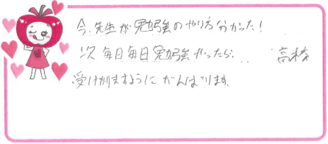 今、先生が勉強のやり方分かった!
次 毎日毎日勉強やったら... 高校
受けかるうに がんばります